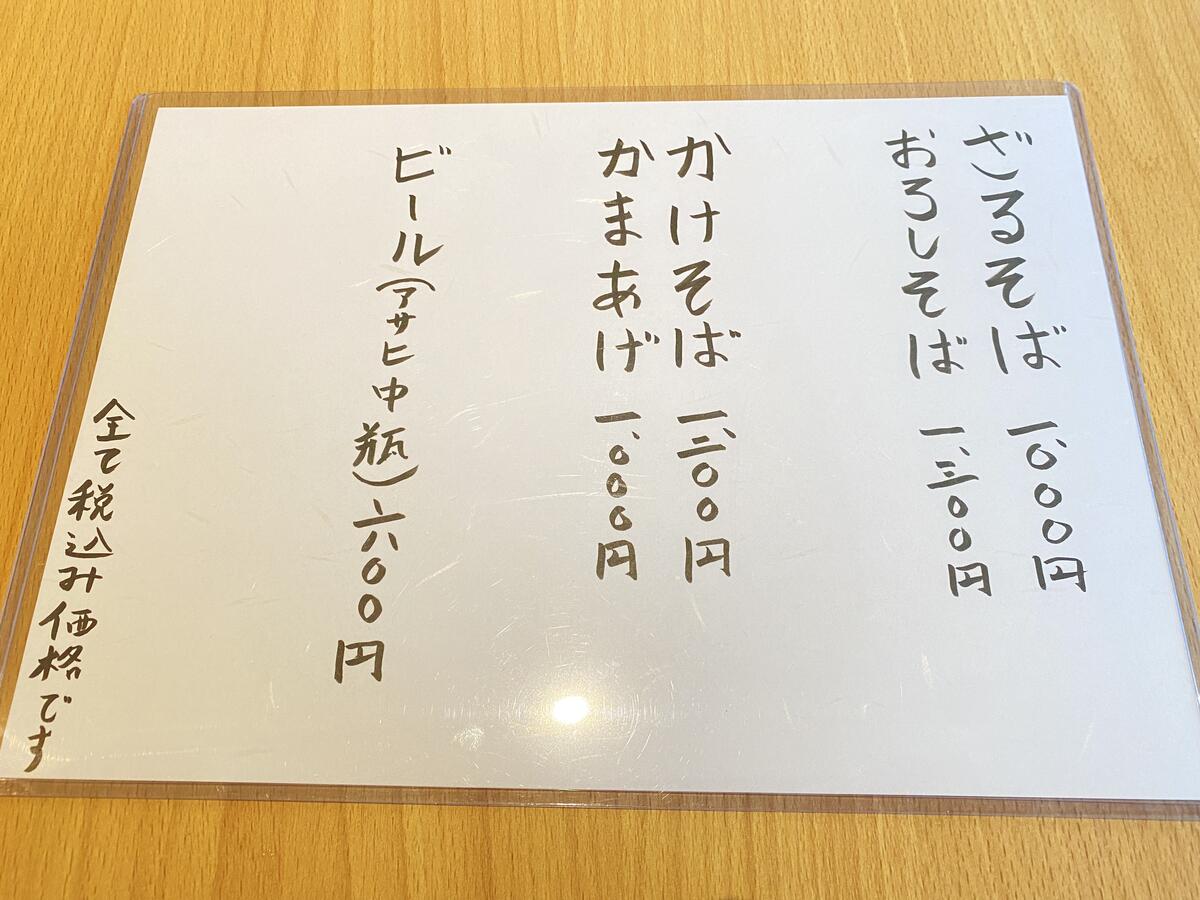 ざるそば 一、〇〇〇円
おろしそば 一、三〇〇円
かけそば 一、三〇〇円
かまあげ 一、〇〇〇円
ビール(アサヒ中瓶)六〇〇円
全て税込み価格です